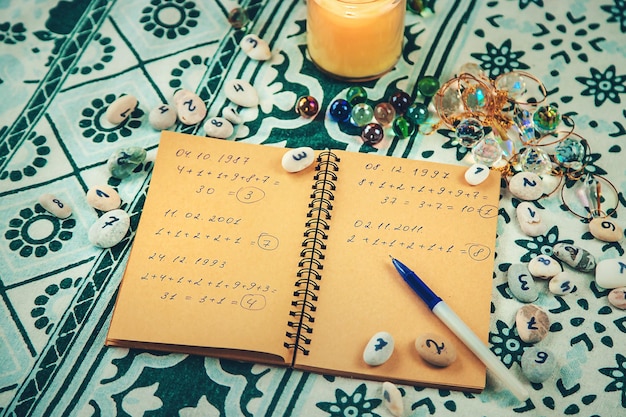 04.10.1987
4+1+1+9+8+7=
30 = 3
11.02.2001
1+1+2+2+1 = 7
24.12.1993
2+4+1+2+1+9+9+3=
31 = 3+1= 4
08.12.1997
8+1+2+1+9+9+7=
37 = 3+7=
02.11.2011
2+1+1+2+1+1 = 8
3
1
1
2
7
8
3
2
1
2
9